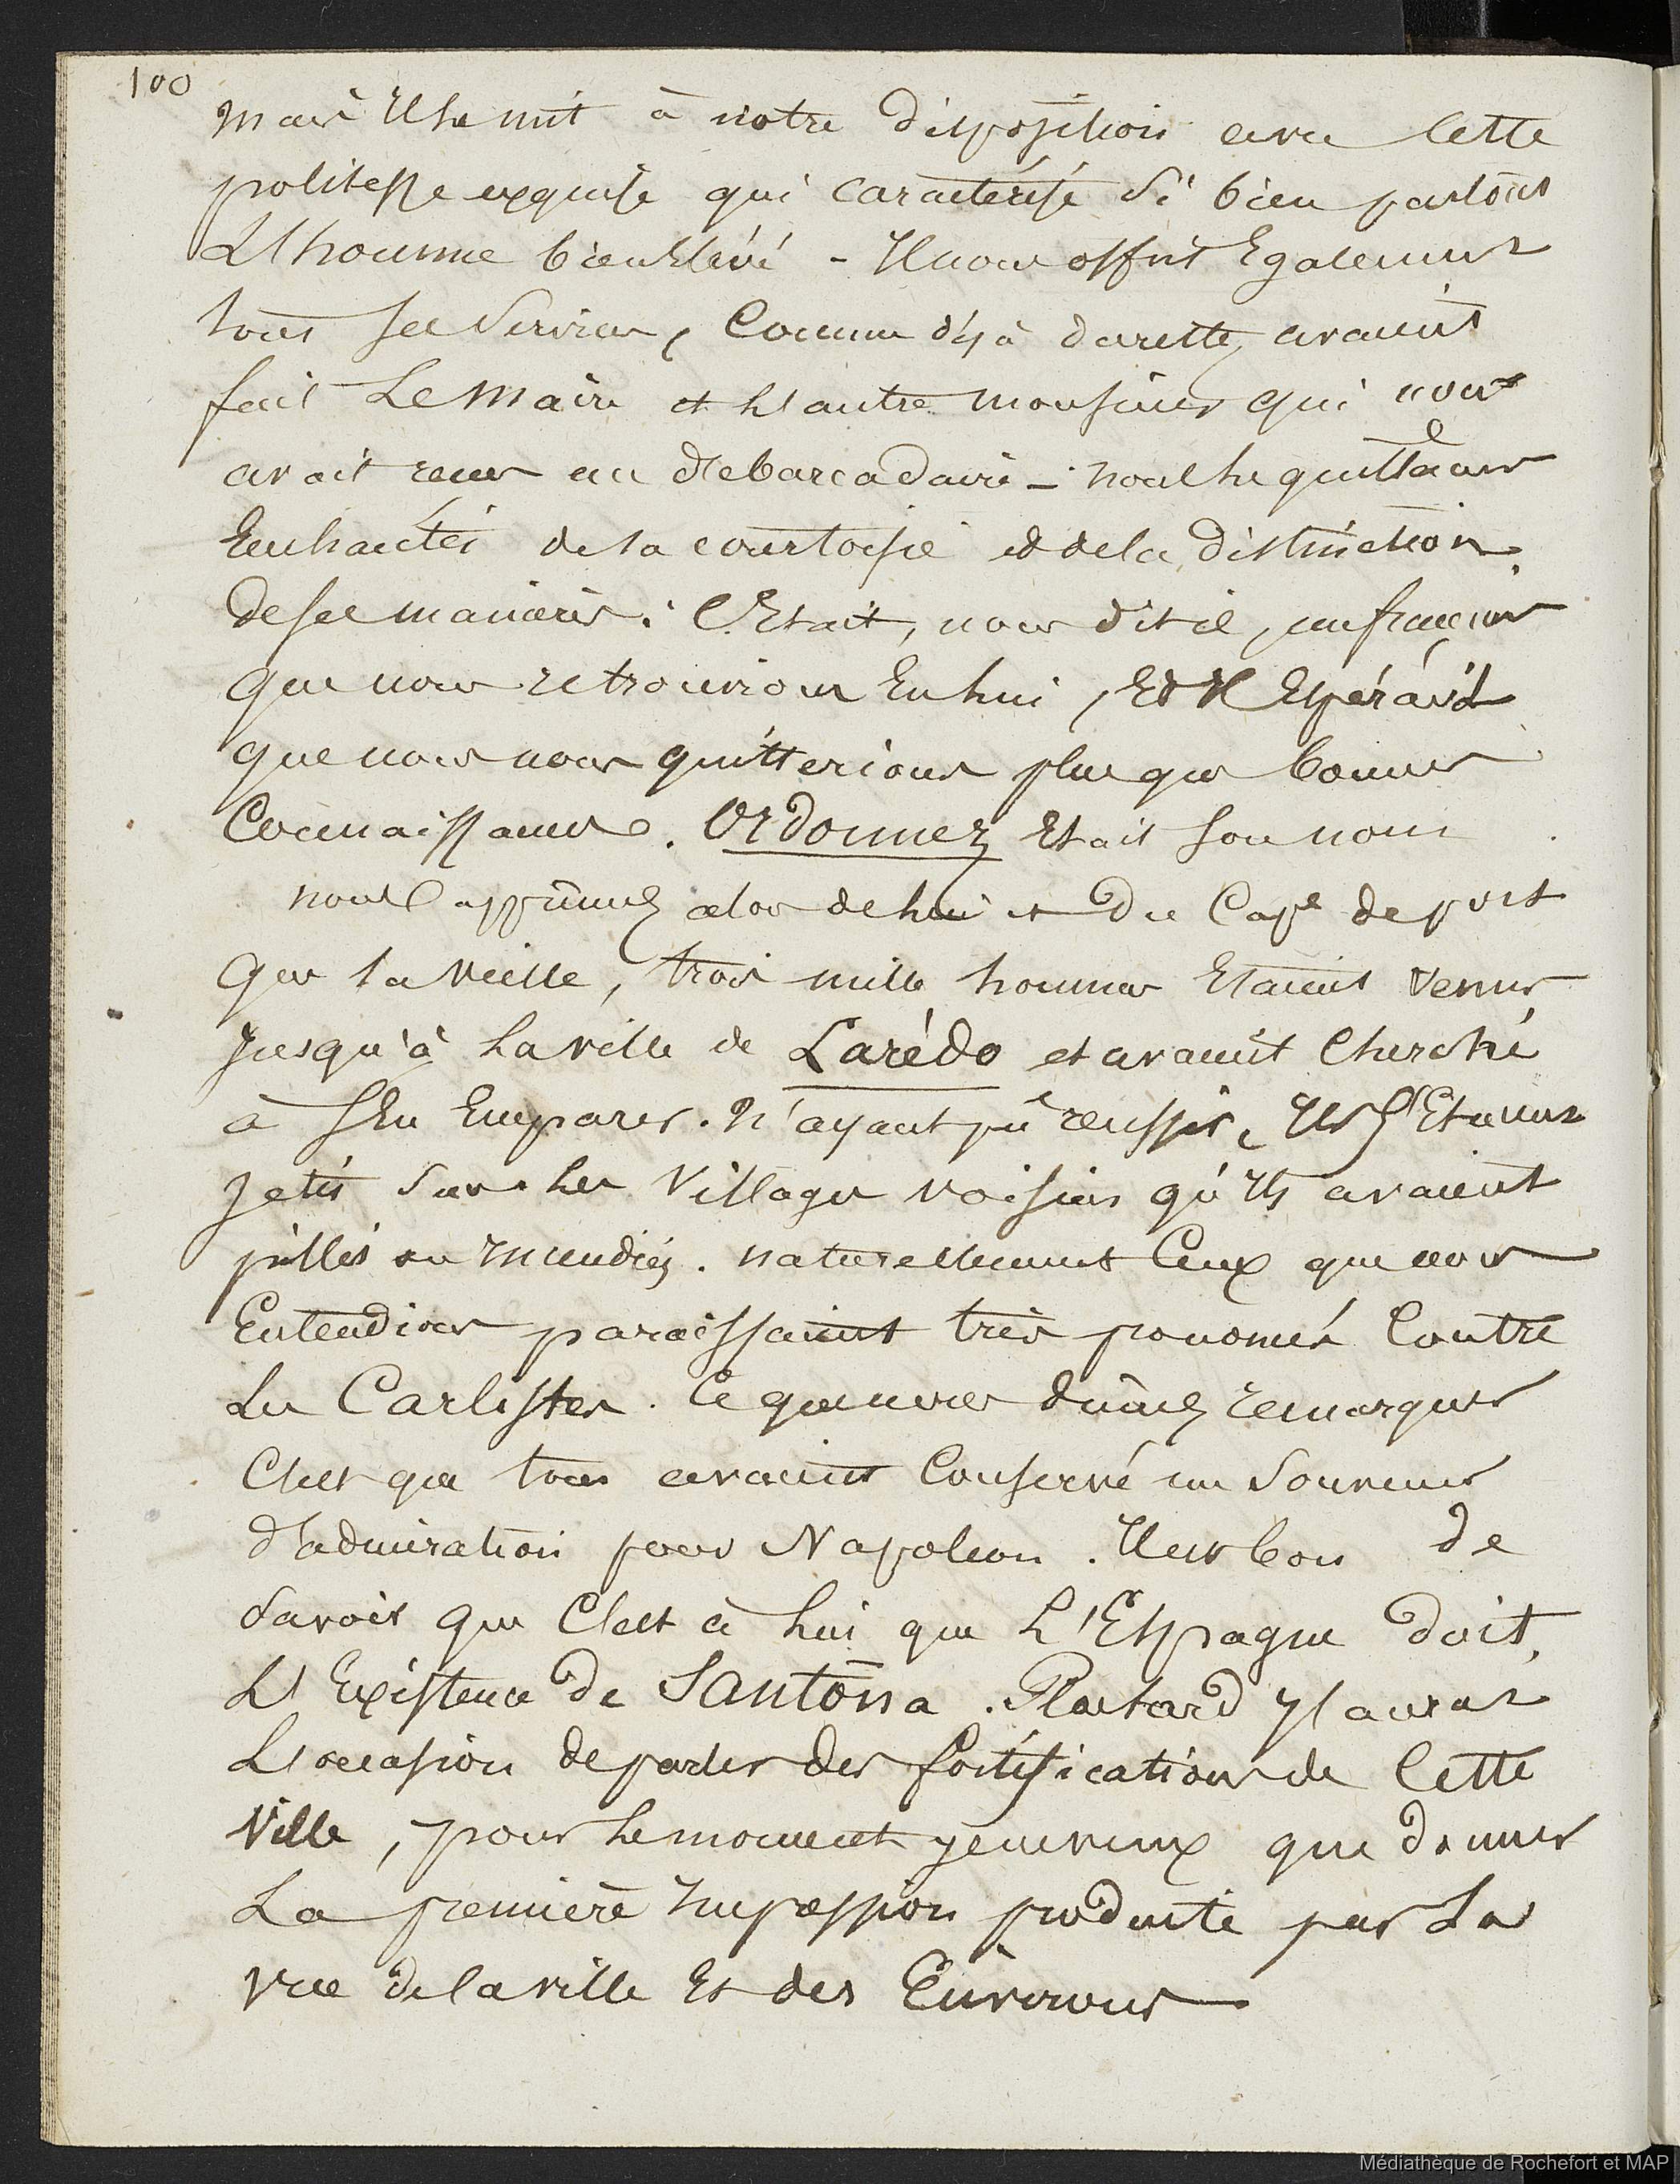 100
mais Il se mit à notre disposition avec cette
politesse exquise qui caractérise si bien partout
L'homme bien Elévé - Il nous offrit Egalement
tous ses services, Comme déjà dureste, avaient
fait Le Maire et L'autre monsieur qui nous
avait reçus au débarcadaire - nous le quittâmes
Enchantés de sa courtoisie et de la distinction
de ses manières. C'Etait, nous dit il, un français
que nous retrouvions En lui, Et Il Espérait
que nous nous quitterions plus que bonnes
Connaissances. Ordonnez Etait son nom
nous apprîmes alors de lui et du Cape de port
que la veille, trois mille hommes Etaient venus
Jusqu'à La ville de Larédo et avaient Cherché
à S'En Emparer. N'ayant pu réussir, Ils S'Etaient
Jetés sur les Villages voisins qu'Ils avaient
pillés ou Incendiés. naturellement Ceux que nous
Entendions paraissaient très prononcés Contre
Les Carlistes. Ce que nous dûmes remarquer
C'est que tous avaient Conservé un Souvenir
d'admiration pour Napoléon. Il est bon de
savoir que C'est à lui que L'Espagne doit
L'Existence de Santona. Plus tard J'aurai
L'occasion de parler des fortifications de Cette
Ville, pour le moment je ne veux que donner
La première Impression produite par La
vue de la ville Et des Environs
Médiathèque de Rochefort et MAP